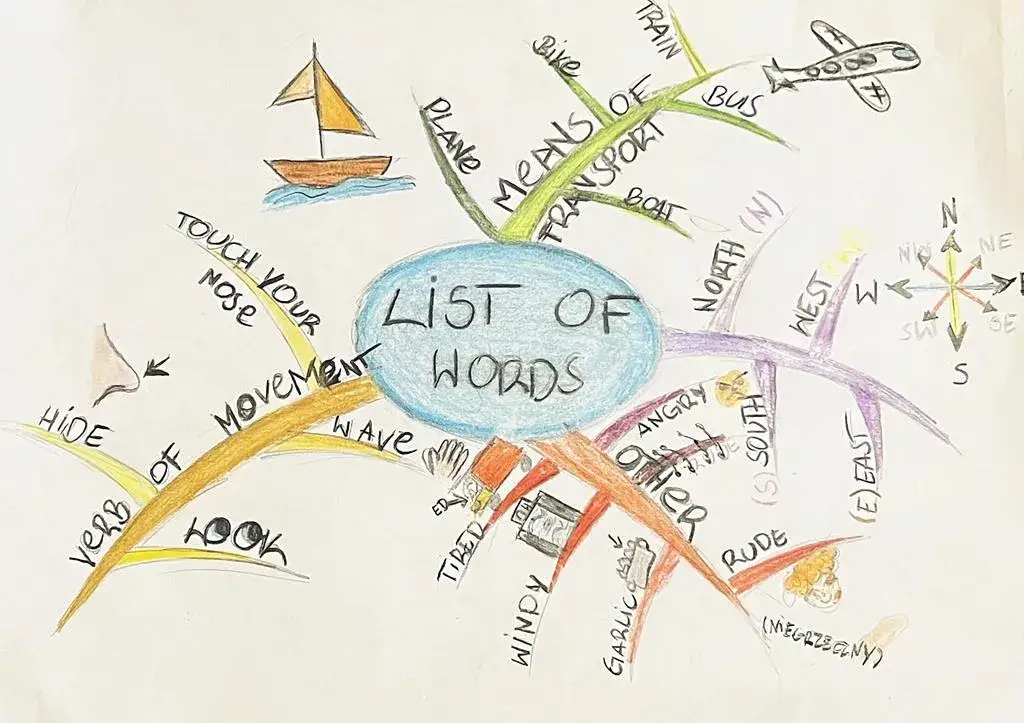 LIST OF
WORDS
MEANS OF
TRANSPORT
PLANE
BIKE
TRAIN
BUS
BOAT
NORTH (N)
WEST
SOUTH
(S)
(E) EAST
N
NE
SE
S
SW
W
NW
VERB OF MOVEMENT
TOUCH YOUR
NOSE
HIDE
WAVE
LOOK
OTHER
ANGRY
TIRED
ED
WINDY
GARLIC
RUDE
(NIEGRZECZNY)